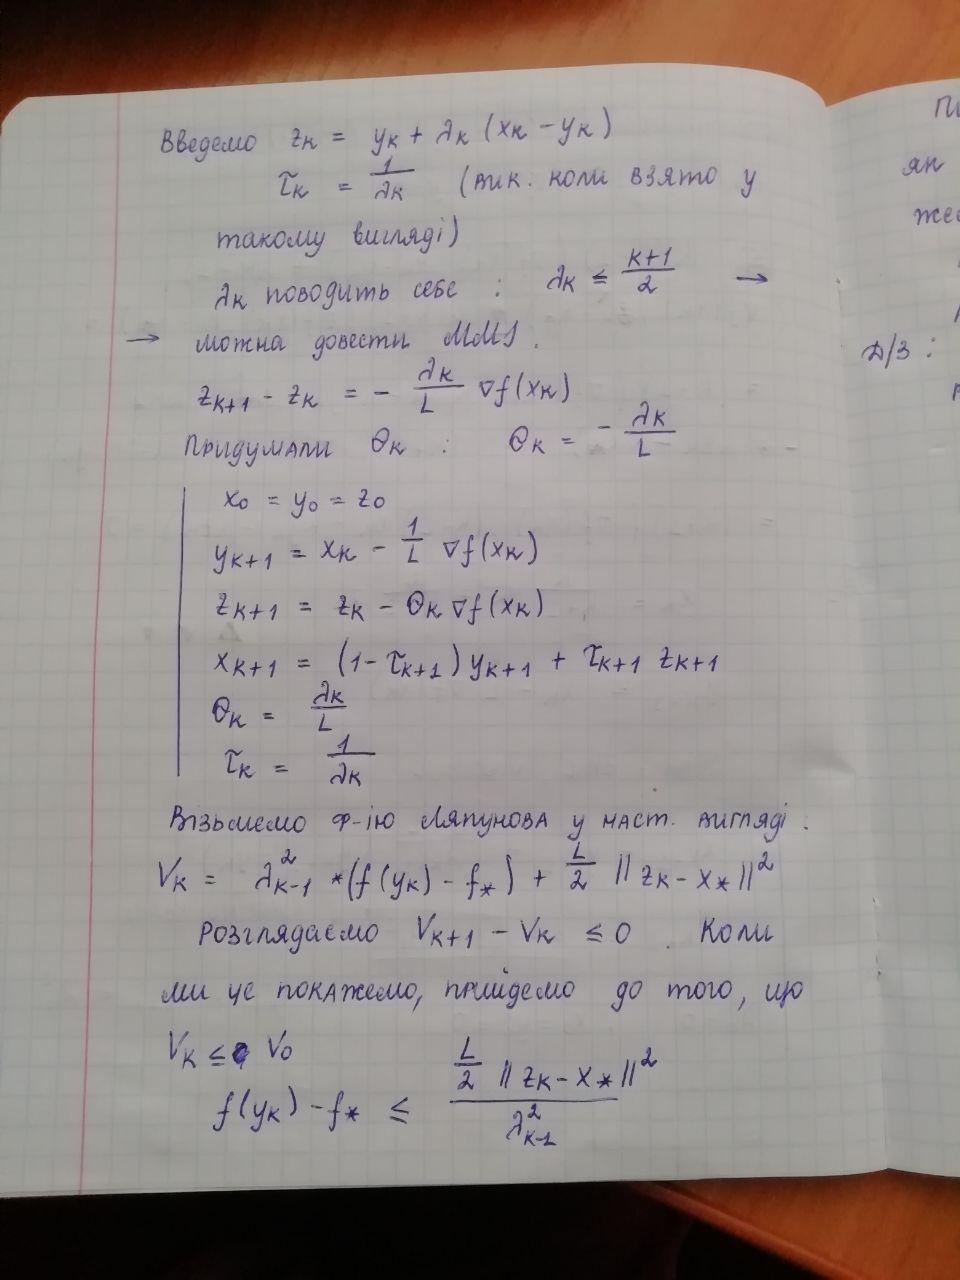 Введемо z_k = y_k + λ_k (x_k − y_k)
τ_k = 1/λ_k (вик. коли взято у
такому вигляді)
λ_k поводить себе : λ_k ≤ (k+1)/2 →
→ можна довести ММІ.
z_{k+1} − z_k = − λ_k/L ∇f(x_k)
Придумали θ_k : θ_k = − λ_k/L
x_0 = y_0 = z_0
y_{k+1} = x_k − 1/L ∇f(x_k)
z_{k+1} = z_k − θ_k ∇f(x_k)
x_{k+1} = (1 − τ_{k+1}) y_{k+1} + τ_{k+1} z_{k+1}
θ_k = λ_k/L
τ_k = 1/λ_k
Візьмемо ф-ію Ляпунова у наст. вигляді :
V_k = λ²_{k−1} *(f(y_k) − f_*) + L/2 ||z_k − x_*||²
Розглядаємо V_{k+1} − V_k ≤ 0 . Коли
ми це покажемо, прийдемо до того, що
V_k ≤ V_0
f(y_k) − f_* ≤ (L/2 ||z_k − x_*||²)/λ²_{k−1}
як
Д/З :